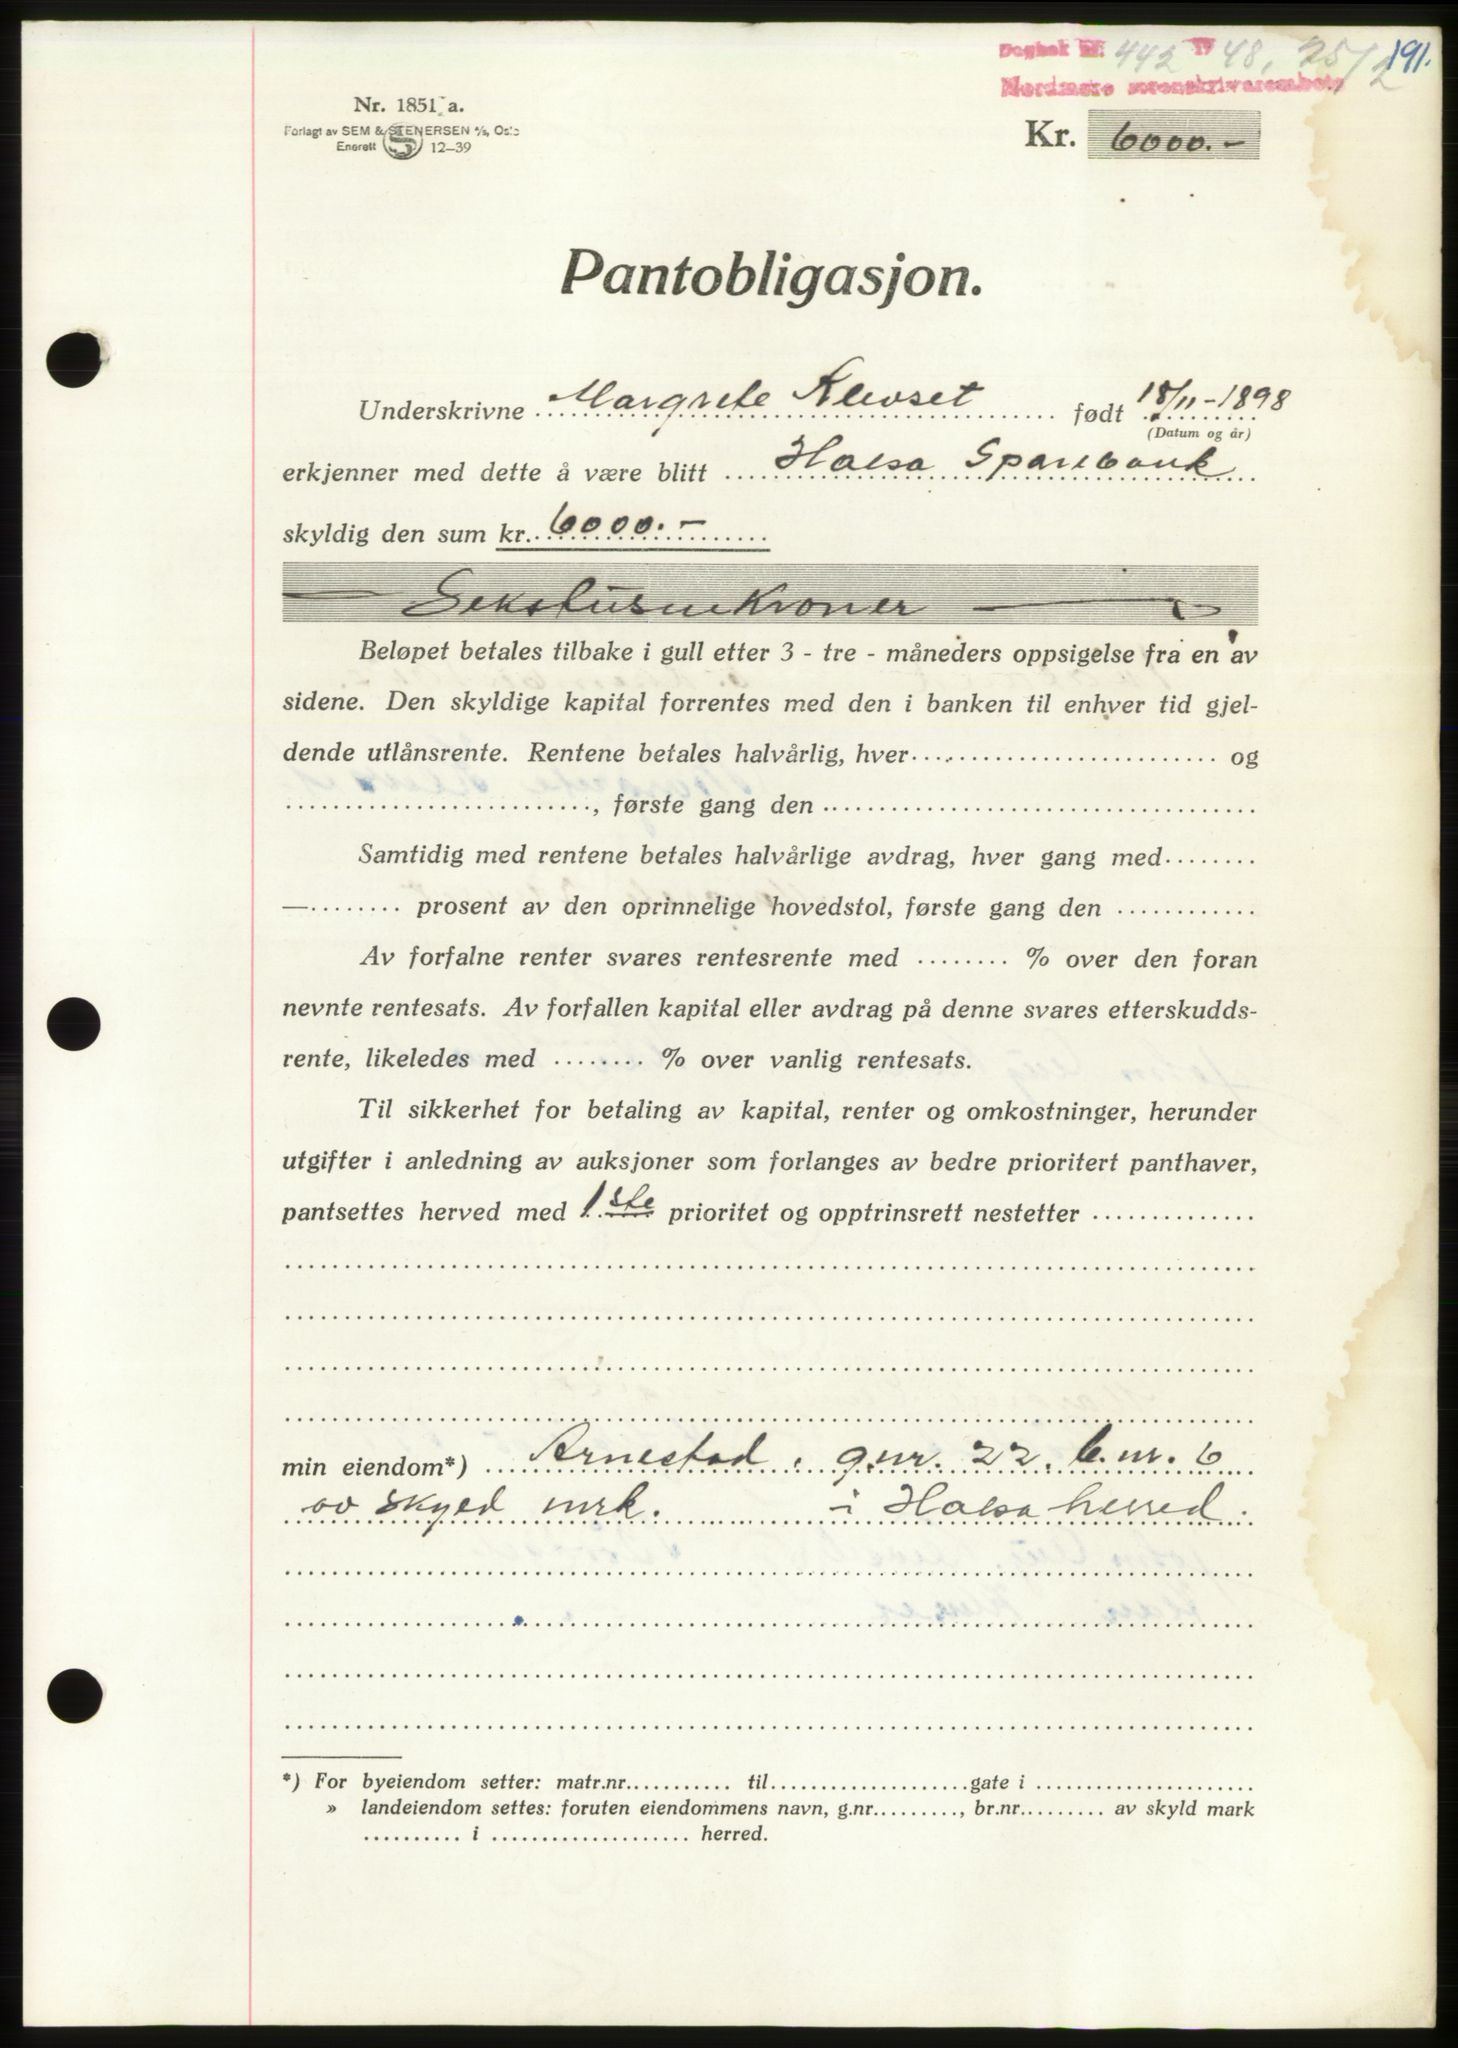 Dagbok nr. 442 19 48, 25/2 191.
Nordmøre sorenskrivarembete
Nr. 1851 a.
Forlagt av SEM & STENERSEN A/S, Oslo
Enerett S 12-39
Kr. 6000.-
Pantobligasjon.
Underskrivne Margrete Klevset født 18/11-1898
(Datum og år)
erkjenner med dette å være blitt Halsa Sparebank
skyldig den sum kr. 6000.-
— Sekstusen kroner —
Beløpet betales tilbake i gull etter 3 - tre - måneders oppsigelse fra en av
sidene. Den skyldige kapital forrentes med den i banken til enhver tid gjel-
dende utlånsrente. Rentene betales halvårlig, hver .......... og
.........., første gang den ..........
Samtidig med rentene betales halvårlige avdrag, hver gang med ........
—........ prosent av den oprinnelige hovedstol, første gang den ..........
Av forfalne renter svares rentesrente med ........ % over den foran
nevnte rentesats. Av forfallen kapital eller avdrag på denne svares etterskudds-
rente, likeledes med ........ % over vanlig rentesats.
Til sikkerhet for betaling av kapital, renter og omkostninger, herunder
utgifter i anledning av auksjoner som forlanges av bedre prioritert panthaver,
pantsettes herved med 1ste prioritet og opptrinsrett nestetter ..........
min eiendom*) Arnestad, g.nr. 22, b.nr. 6
av skyld mrk. i Halsa herred.
*) For byeiendom setter: matr.nr........... til..........gate i ..........
» landeiendom settes: foruten eiendommens navn, g.nr.........., br.nr.......... av skyld mark
.......... i .......... herred.